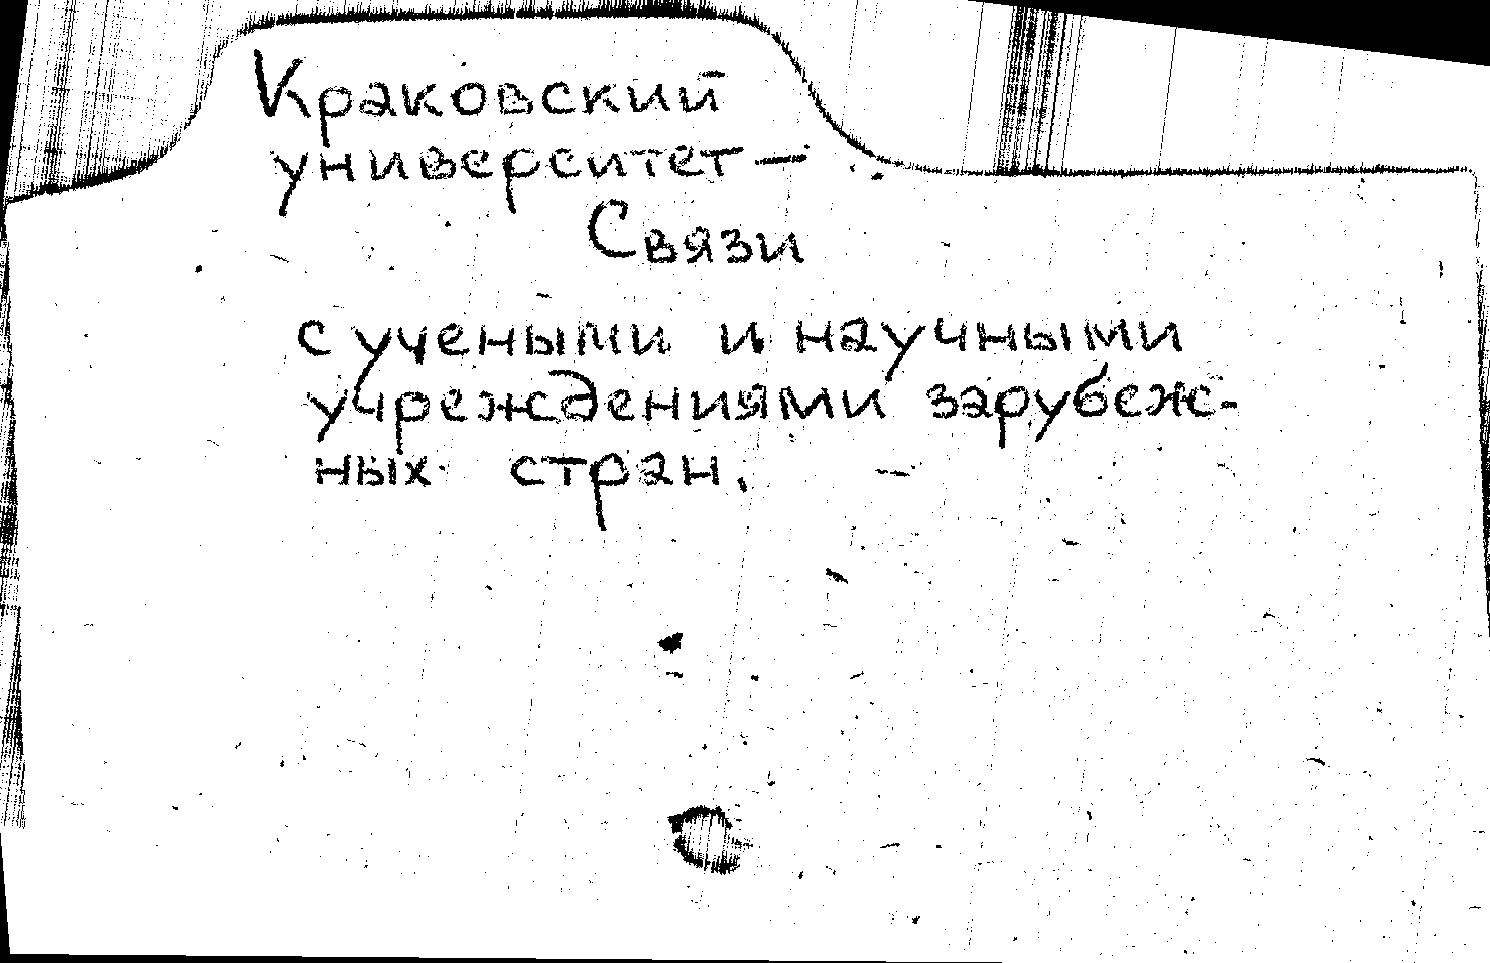 Краковский
университет —
Связи
с учеными и научными
учреждениями зарубеж-
ных стран.